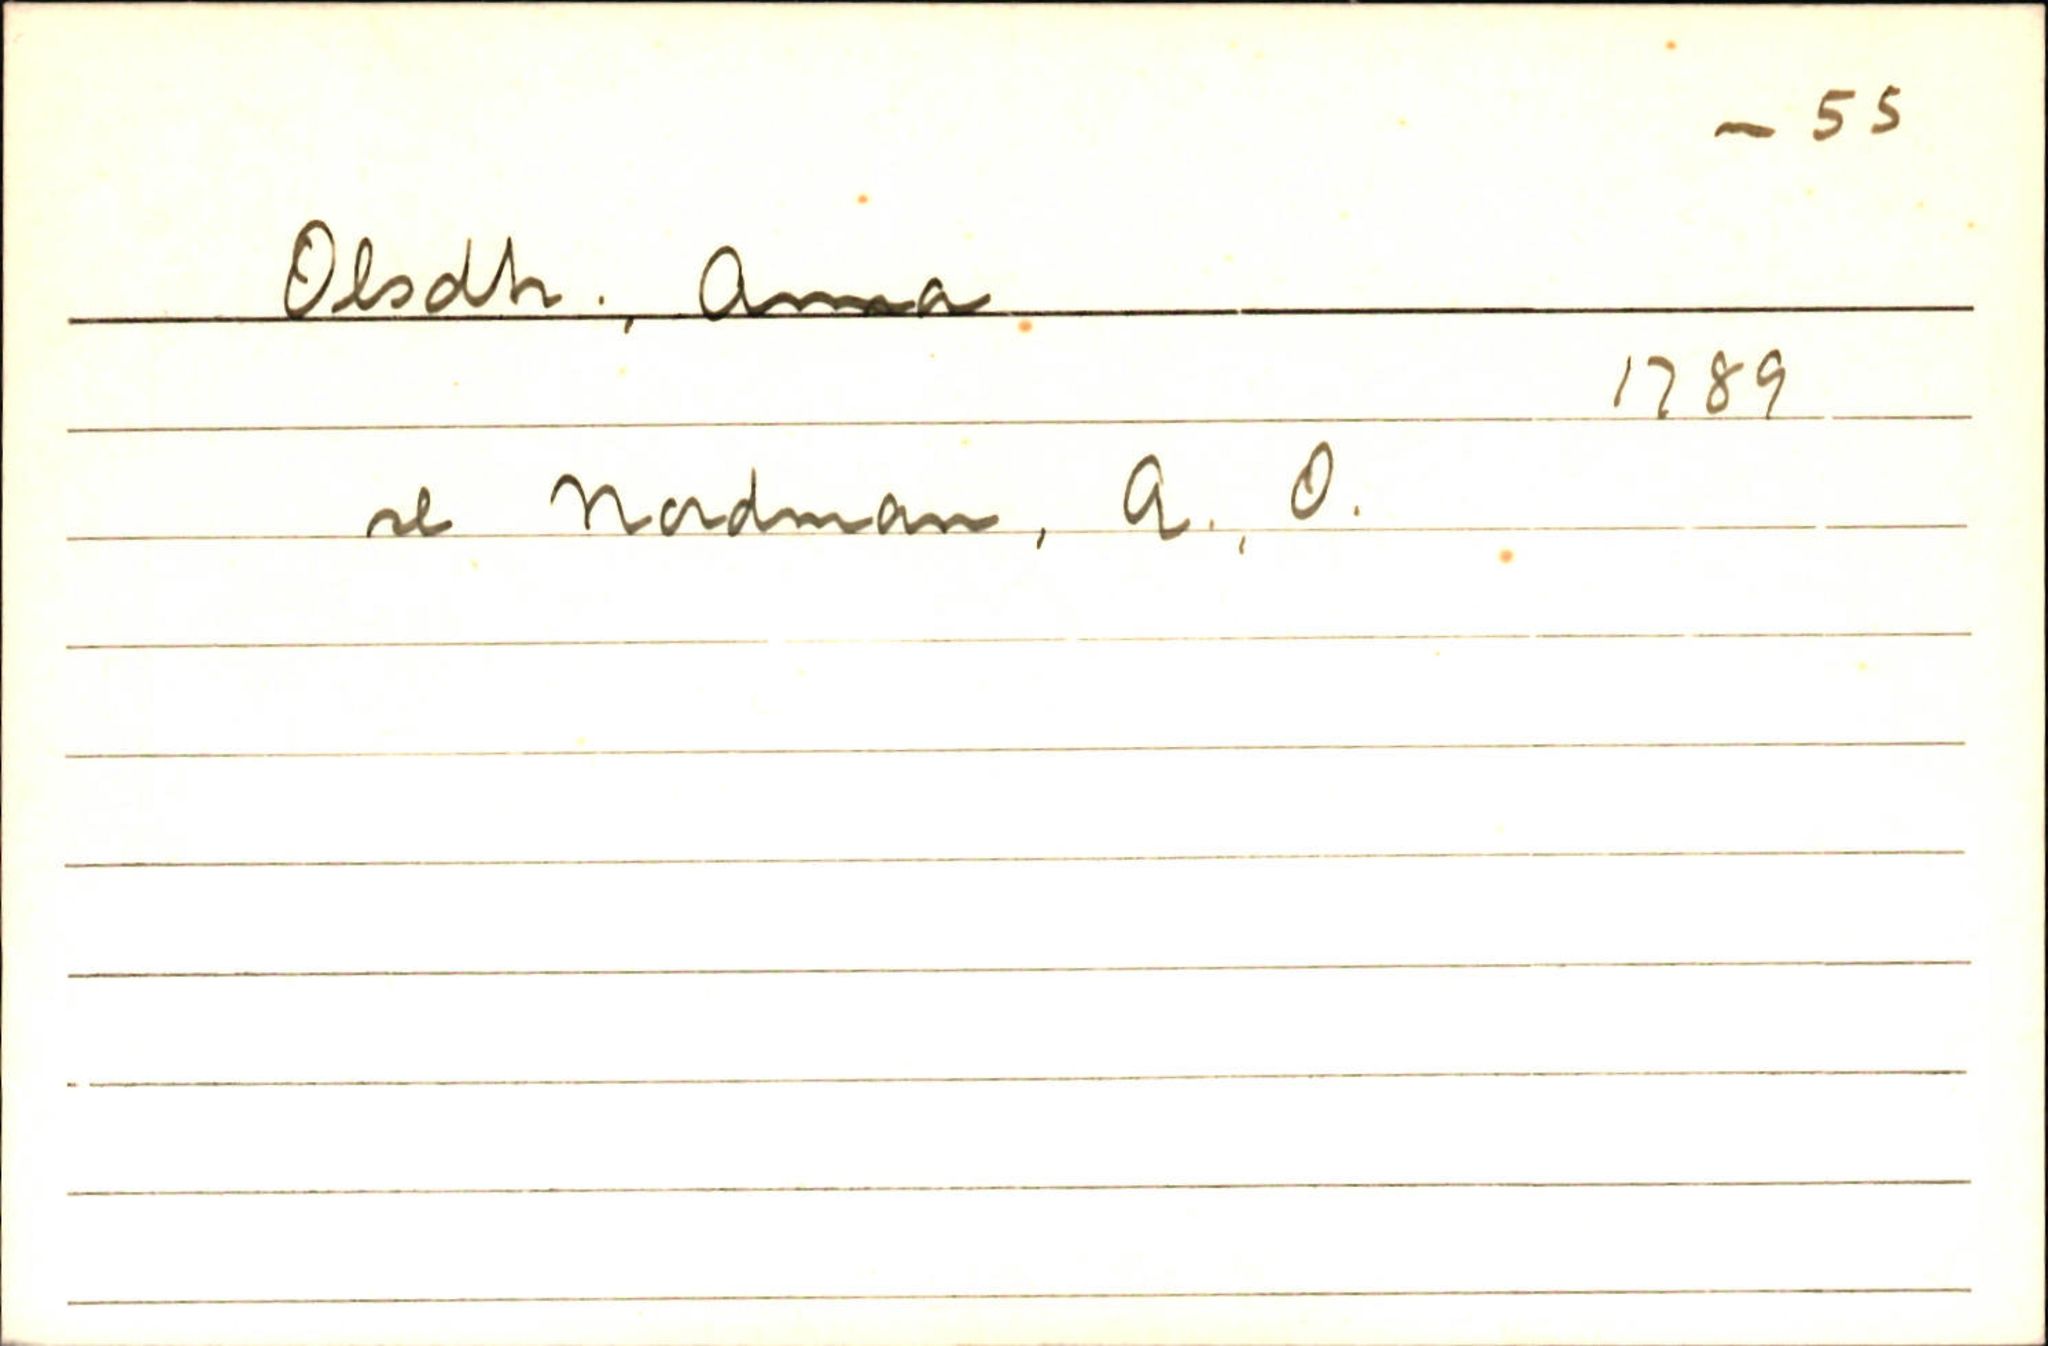 – 55
Olsdtr., Anna
1789
se Nordman, A., O.